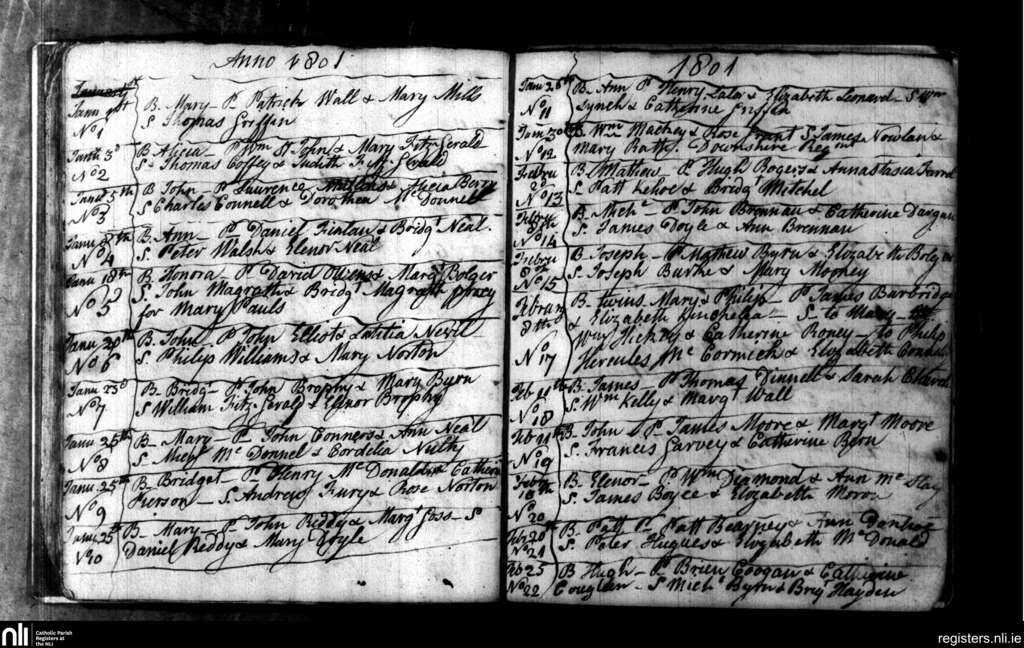 Anno 1801
Janu 1st B. Mary - Ps. Patrick Wall & Mary Mills
No 1 S. Thomas Griffin
Janu 3d B. Alicia - Ps. Wm St John & Mary Fitz Gerald
No 2 Ss. Thomas Coffey & Judith Fitz Gerald
Janu 5th B. John - Ps. Laurence & Alicia Berry
No 3 S. Charles Connell & Dorothea McDonnell
Janu B. Ann - Ps. Daniel Finlan & Bridgt Neal.
No 4 S. Peter Walsh & Elenor Neal
Janu 18th B. Honora - Ps. David Owens & Margt Bolger
No 5 S. John Magrath & Bridgt Magrath proxy
for Mary Pauls
Janu 20th B. John - Ps. John Elliot & Latitia Nevil
No 6 S. Philip Williams & Mary Norton
Janu 23d B. Bridgt - Ps. John Brophy & Mary Byrn
No 7 S. William Fitz-Gerald & Elinor Brophy
Janu 25th B. Mary - Ps. John Conners & Ann Neal
No 8 S. Michl McDonnel & Cordelia Nulty
Janu 25th B. Bridget - Ps. Henry McDonald & Catherin
No 9 Pierson - S. Andrew Fury & Rose Norton
Janu 25th B. Mary - Ps. John Reddy & Margt Foss - S
No 10 Daniel Reddy & Mary Doyle
1801
Janu 26th B. Ann Ps. Henry Lalor & Elizabeth Leonard - S. Wm
No 11 Lynch & Catherine Griffin
Janu 30th B. Wm Mackey & Rose Grant S. James Nowlan &
No 12 Mary Rath. Downshire Regint
Febru 2d B. Mathew - Ps. Hugh Rogers & Annastasia Farrel
No 13 S. Patt Kehoe & Bridgt Mitchel
Febru 8th B. Michl - Ps. John Brennan & Catherine Dargan
No 14 S. James Doyle & Ann Brennan
Febru 8th B. Joseph - Ps. Mathew Byrn & Elizabeth Bolger
No 15 S. Joseph Burke & Mary Mooney
Febru 8th B. twins Mary & Philip - Ps. James Burbridge
& Elizabeth Dinchelia - S. to Mary -
No 17 Wm Hickey & Catherine Roney - to Philip
Hercules McCormick & Elizabeth Connell
Feb 11th B. James - Ps. Thomas Dinnell & Sarah Church
No 18 S. Wm Kelly & Margt Wall
Feb 11th B. John - Ps. James Moore & Margt Moore
No 19 S. Francis Garvey & Catherine Byrn
Febru 18th B. Elenor - Ps. Wm Diamond & Ann McSlay
No 20 S. James Boyce & Elizabeth Moron
Feb 20th B. Patt Ps. Patt Bearney & Ann
No 21 S. Peter Hughes & Elizabeth McDonald
Feb 25 B. Hugh - Ps. Brien Coogan & Catherine
No 22 Coughlan - S. Michl Byrn & Bridgt Hayden
nli
Catholic Parish
Registers at
the NLI
registers.nli.ie